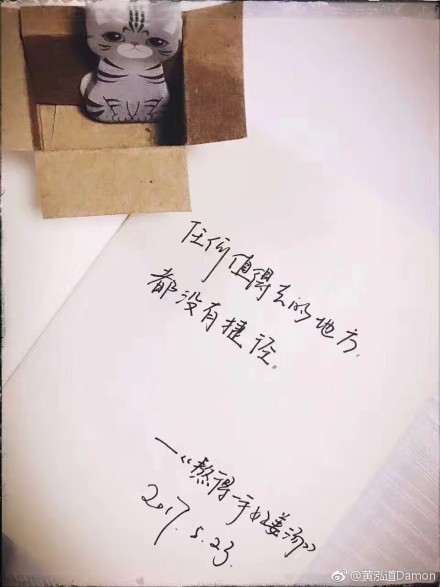 任何值得去的地方，
都没有捷径。
—《熬得一手好姜汤》
2017.5.23.
@黄泓道Damon